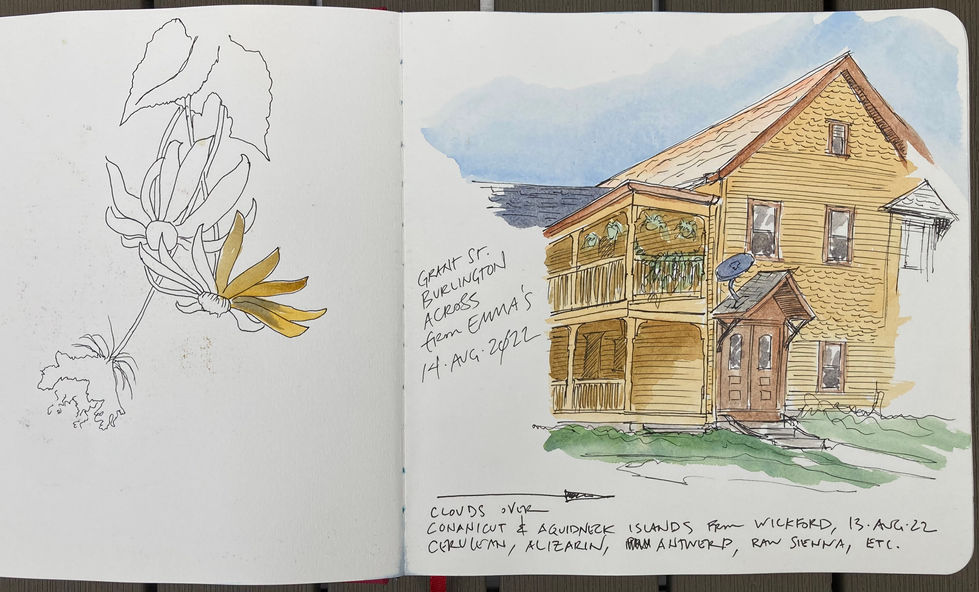 GRANT ST.
BURLINGTON
ACROSS
from EMMA'S
14.AUG.2022
CLOUDS OVER
CONANICUT & AQUIDNECK ISLANDS From WICKFORD, 13.AUG.22
CERULEAN, ALIZARIN, ANTWERP, RAW SIENNA, ETC.